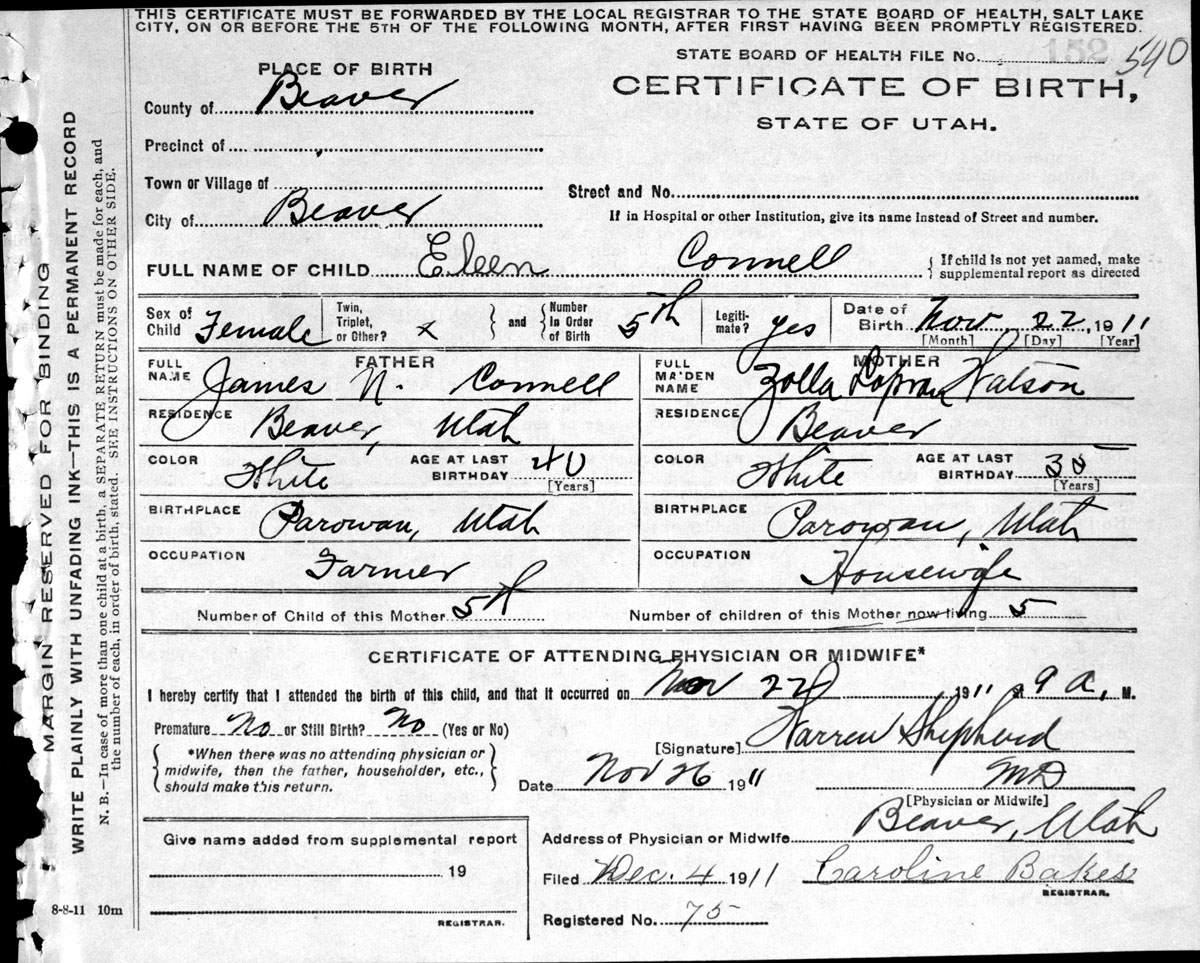 THIS CERTIFICATE MUST BE FORWARDED BY THE LOCAL REGISTRAR TO THE STATE BOARD OF HEALTH, SALT LAKE
CITY, ON OR BEFORE THE 5TH OF THE FOLLOWING MONTH, AFTER FIRST HAVING BEEN PROMPTLY REGISTERED.
STATE BOARD OF HEALTH FILE No. 152 540
PLACE OF BIRTH
CERTIFICATE OF BIRTH,
STATE OF UTAH.
County of Beaver
Precinct of
Town or Village of
Street and No.
City of Beaver
If in Hospital or other Institution, give its name instead of Street and number.
FULL NAME OF CHILD Eleen Connell
If child is not yet named, make
supplemental report as directed
Sex of Child Female
Twin, Triplet, or Other? x
and Number In Order of Birth 5th
Legitimate? yes
Date of Birth Nov 22, 1911
[Month] [Day] [Year]
FATHER
FULL NAME James N. Connell
RESIDENCE Beaver, Utah
COLOR White
AGE AT LAST BIRTHDAY 40
[Years]
BIRTHPLACE Parowan, Utah
OCCUPATION Farmer
MOTHER
FULL MAIDEN NAME Zolla Watson
RESIDENCE Beaver
COLOR White
AGE AT LAST BIRTHDAY 35
[Years]
BIRTHPLACE Parowan, Utah
OCCUPATION Housewife
Number of Child of this Mother 5th
Number of children of this Mother now living 5
CERTIFICATE OF ATTENDING PHYSICIAN OR MIDWIFE*
I hereby certify that I attended the birth of this child, and that it occurred on Nov 22 1911 at 9 a, M.
Premature No or Still Birth? No (Yes or No)
*When there was no attending physician or
midwife, then the father, householder, etc.,
should make this return.
[Signature] Warren Shepherd
Date Nov 26 1911 MD
[Physician or Midwife]
Address of Physician or Midwife Beaver, Utah
Filed Dec. 4 1911 Caroline Bakes
REGISTRAR.
Registered No. 75
Give name added from supplemental report
19
REGISTRAR.
8-8-11 10m
MARGIN RESERVED FOR BINDING
WRITE PLAINLY WITH UNFADING INK—THIS IS A PERMANENT RECORD
N. B.—In case of more than one child at a birth, a SEPARATE RETURN must be made for each, and
the number of each, in order of birth, stated. SEE INSTRUCTIONS ON OTHER SIDE.